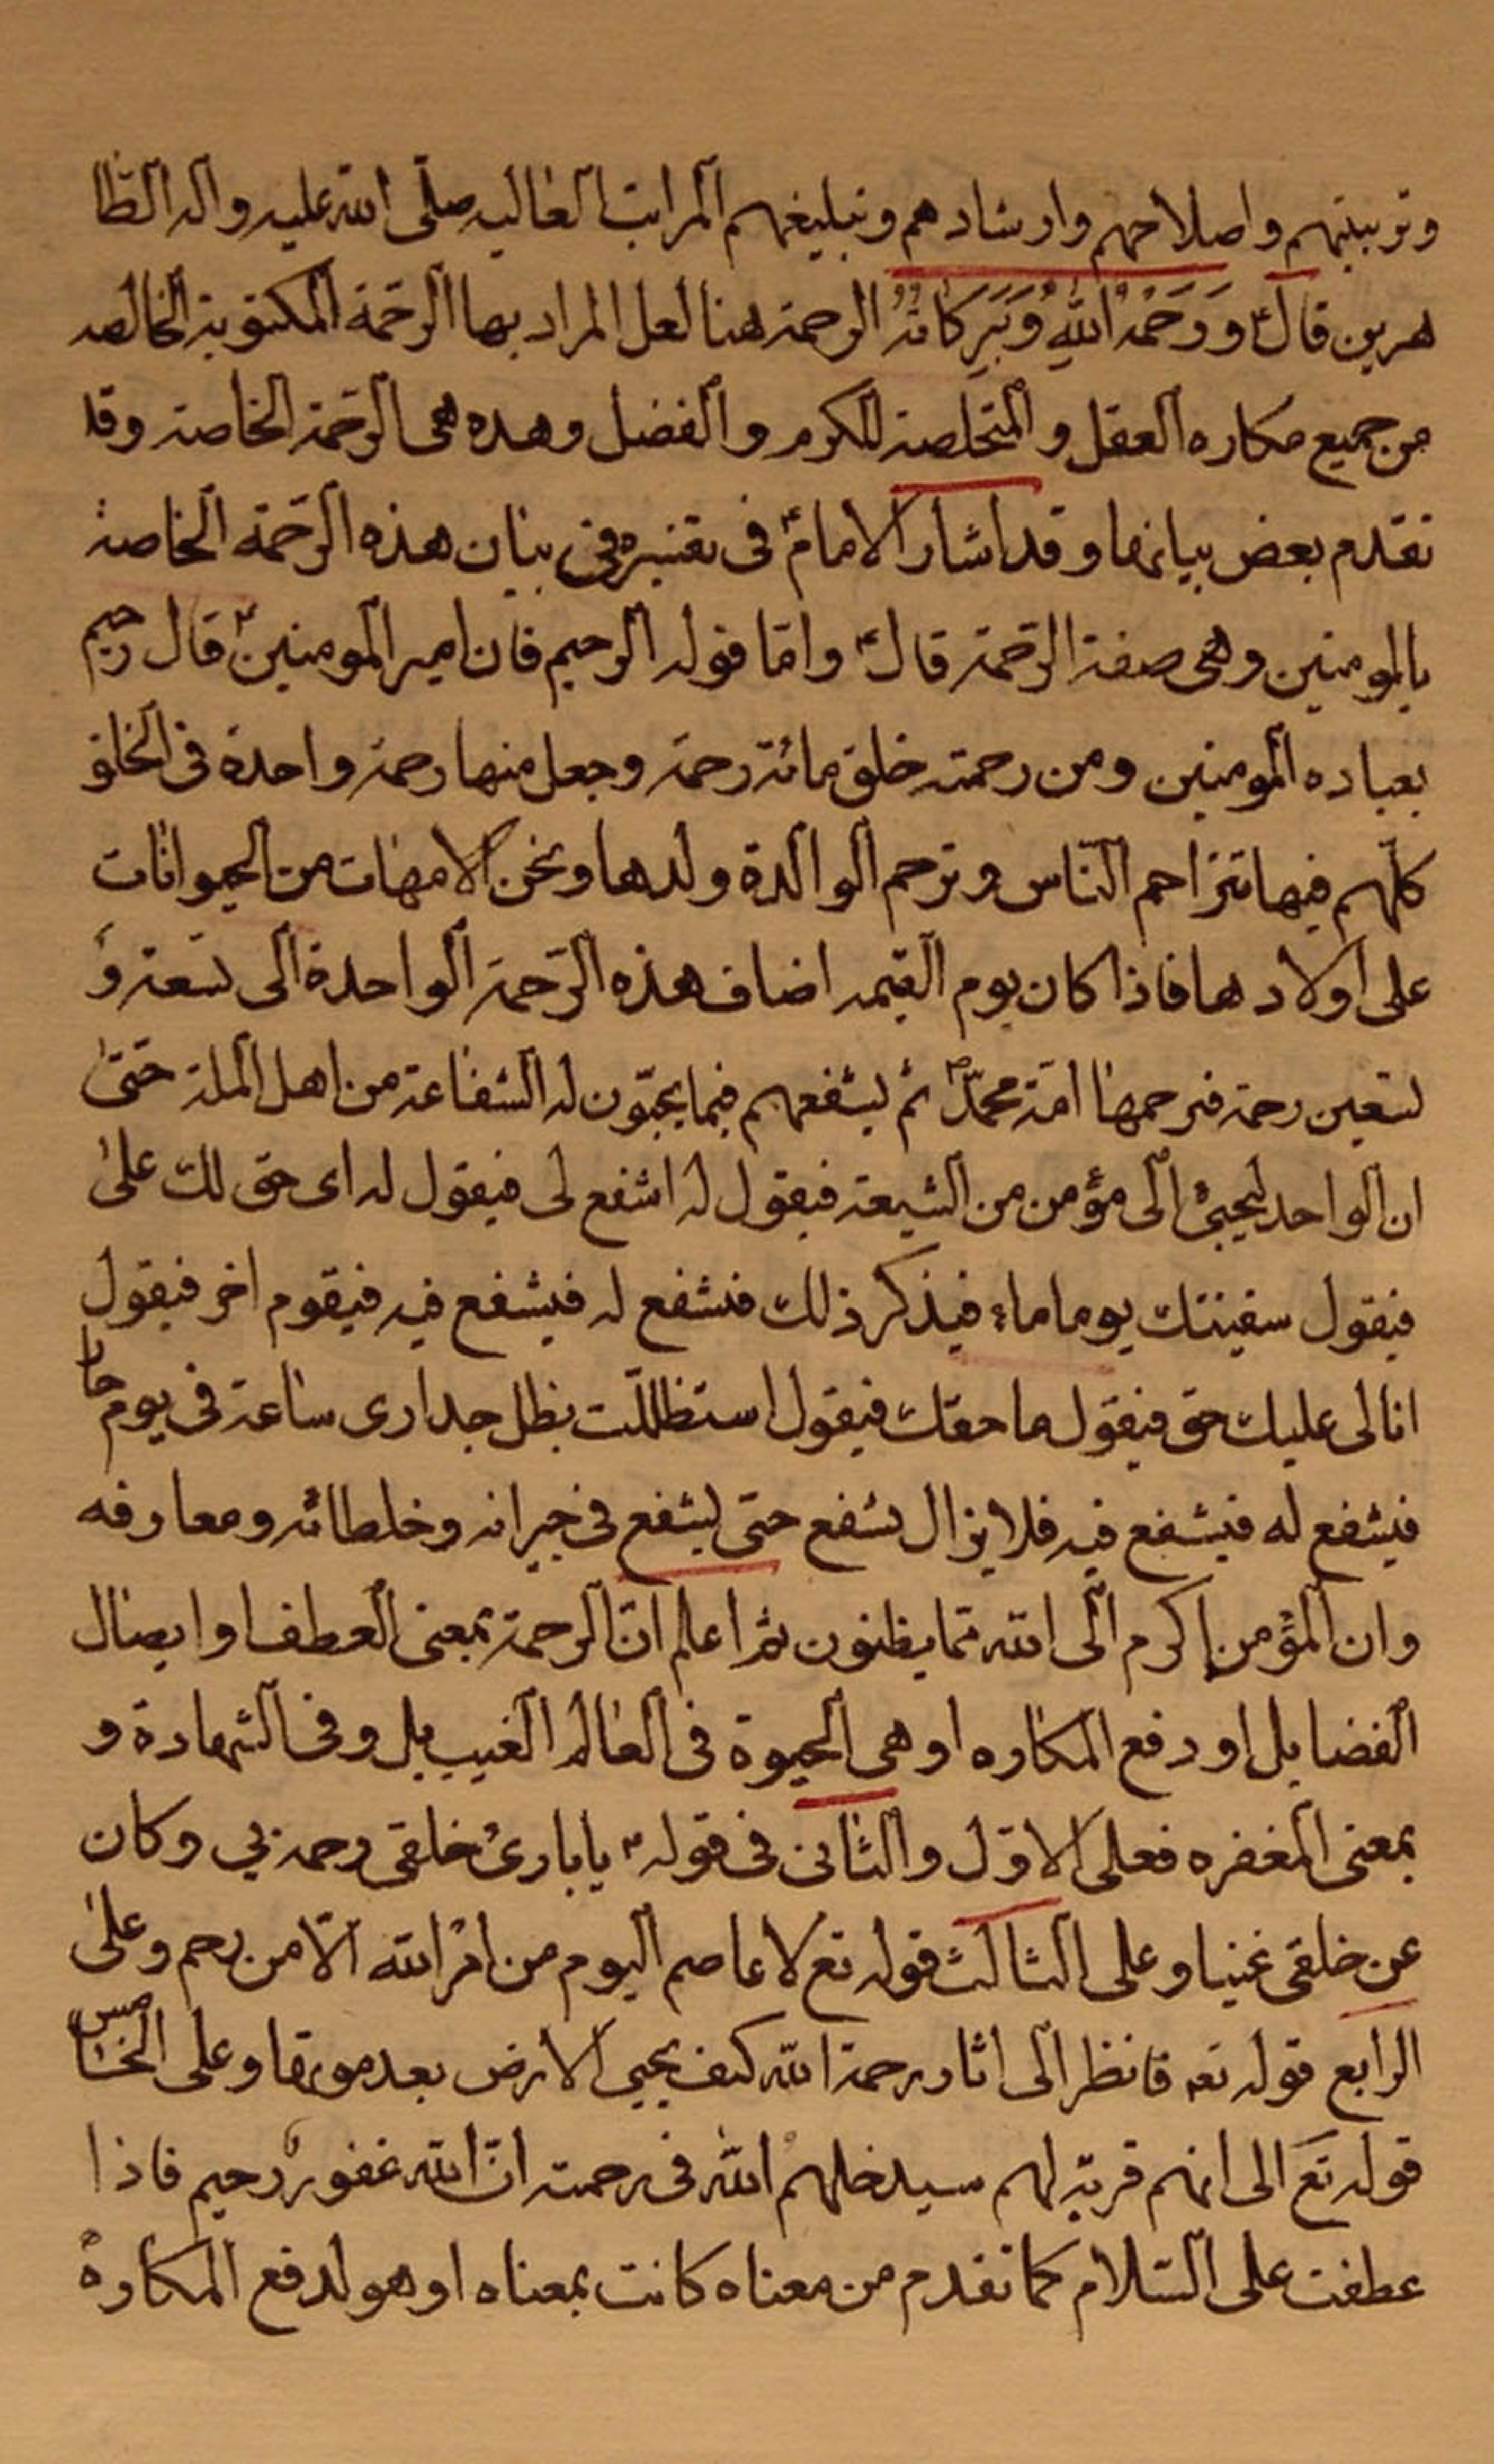 وتربيتهم واصلاحهم وارشادهم وتبليغهم المراتب العاليه صلّى الله عليه واله الطّا
هرين قال ع وَرَحْمَةُ اللهِ وَبَرَكَاتُهُ الرحمة هنا لعل المراد بها الرحمة المكتوبة الخالصه
من جميع مكاره العقل والمتخلصة للكرم والفضل وهذه هى الرحمة الخاصة وقد
تقدم بعض بيانها وقد اشار الامام ع فى تفسيره فى بيان هذه الرحمة الخاصة
بالمومنين وهى صفة الرحمة قال ع وامّا قوله الرحيم فان امير المومنين ع قال رحيم
بعباده المومنين ومن رحمته خلق مائة رحمة وجعل منها رحمة واحدة فى الخلق
كلّهم فبها تتراحم النّاس وترحم الوالدة ولدها وتحنن الامهات من الحيوانات
على اولادها فاذا كان يوم القيمه اضاف هذه الرّحمة الواحدة الى تسعة و
تسعين رحمة فيرحم بها امّة محمّد ص ثم يشفعهم فيما يحبّون له الشفاعة من اهل الملة حتّى
ان الواحد ليجيئ الى مؤمن من الشيعة فيقول له اشفع لى فيقول له اى حق لك علىّ
فيقول سقيتك يوما ماء فيذكر ذلك فيشفع له فيشفع فيه فيقوم اخر فيقول
انا لى عليك حق فيقول ما حقك فيقول استظللت بظل جدارى ساعة فى يوم حار
فيشفع له فيشفع فيه فلا يزال يشفع حتى يشفع فى جيرانه وخلطائه ومعارفه
وان المؤمن اكرم الى الله مما يظنون ثم اعلم انّ الرحمة بمعنى العطف او ايصال
الفضايل او دفع المكاره او هى الحيوة فى العالم الغيب بل وفى الشهادة و
بمعنى المغفره فعلى الاوّل والثانى فى قوله ع يا بارئ خلقى رحمة بي وكان
عن خلقى غنيا وعلى الثالث قوله تع لا عاصم اليوم من امْر الله الّا من رحم وعلى
الرابع قوله تعه فانظر الى اثار رحمة الله كيف يحيى الارض بعد موتها وعلى الخامس
قوله تع الى انهم قربة لهم سيدخلهم الله فى رحمته انّ الله غفور رحيم فاذا
عطفت على السّلام كما تقدم من معناه كانت بمعناه او هو لدفع المكاره